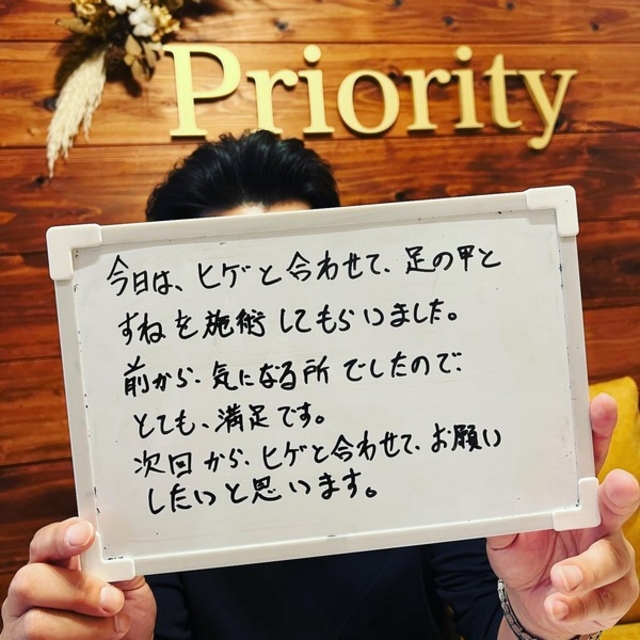 Priority
今日は、ヒゲと合わせて、足の甲と
すねを施術してもらいました。
前から、気になる所でしたので、
とても、満足です。
次回から、ヒゲと合わせて、お願い
したいと思います。